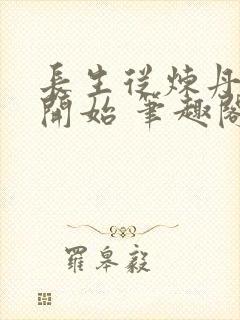 長生從煉丹
開始 筆趣閣
羅皋毅